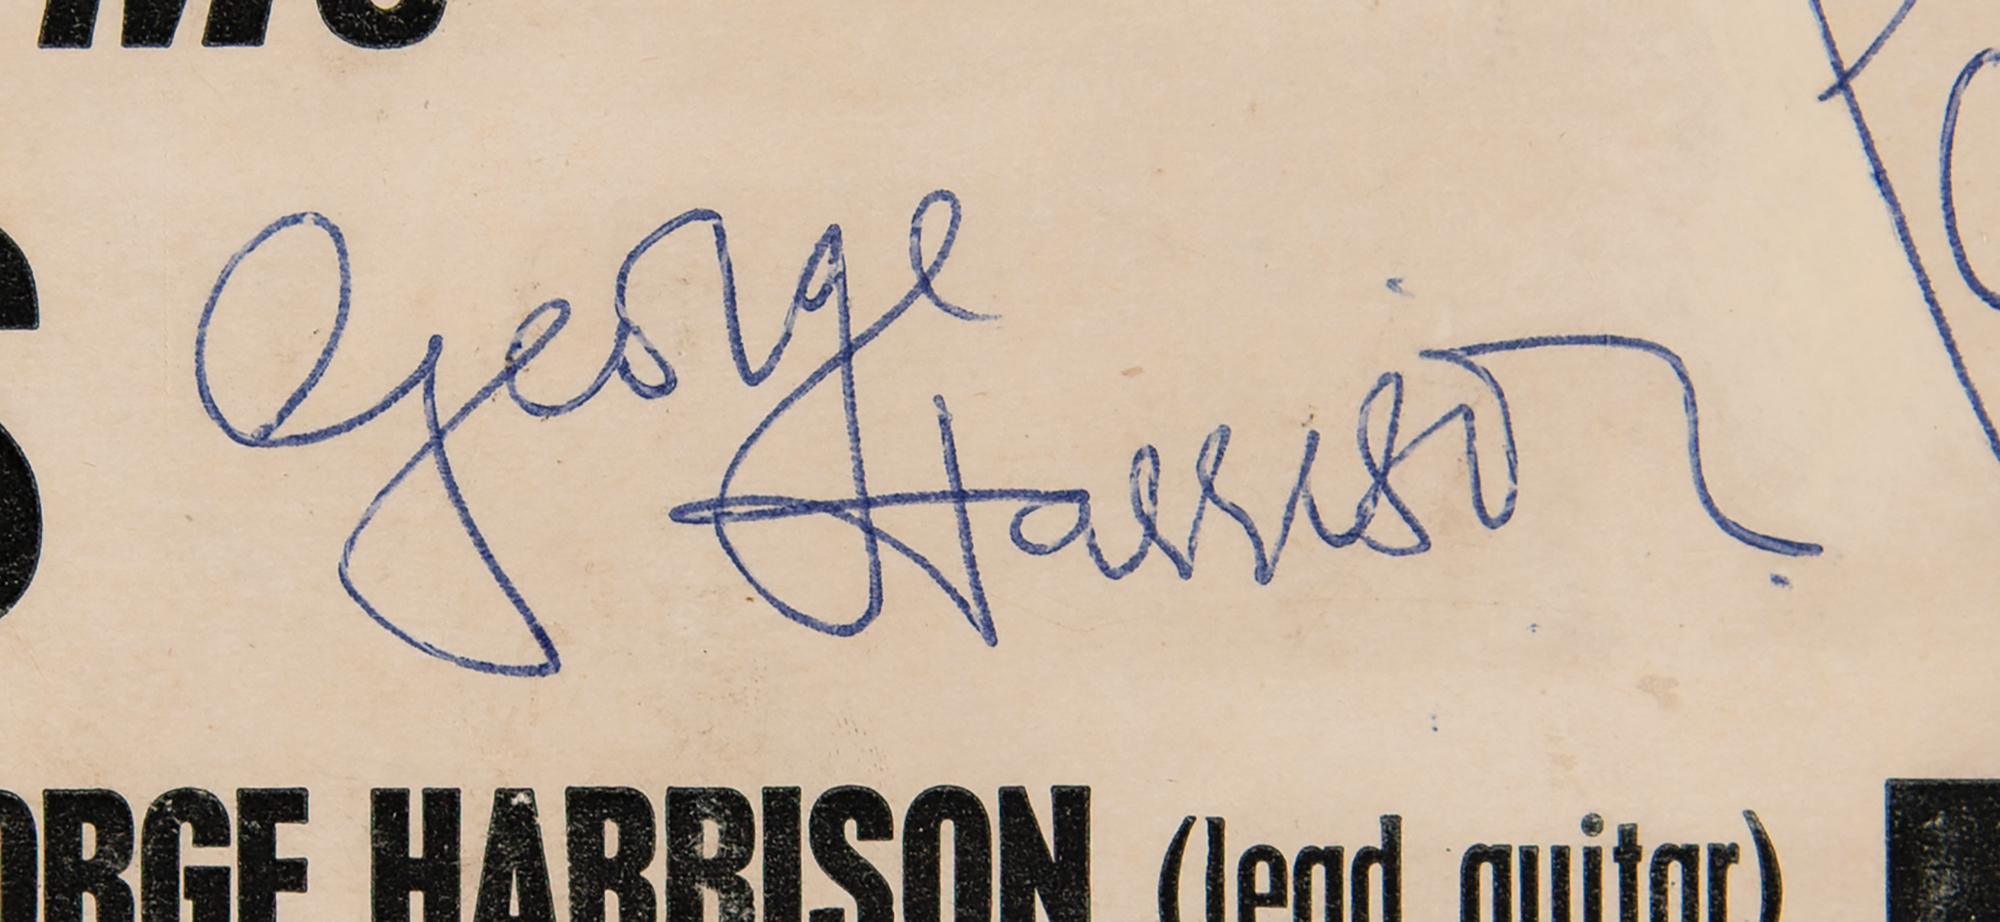 George
Harrison
ORGE HARRISON (lead guitar)